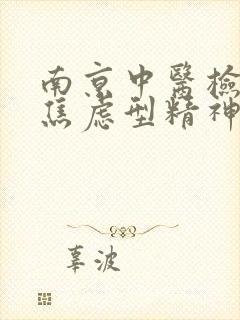 南京中醫檢
焦虑型精神
辜波